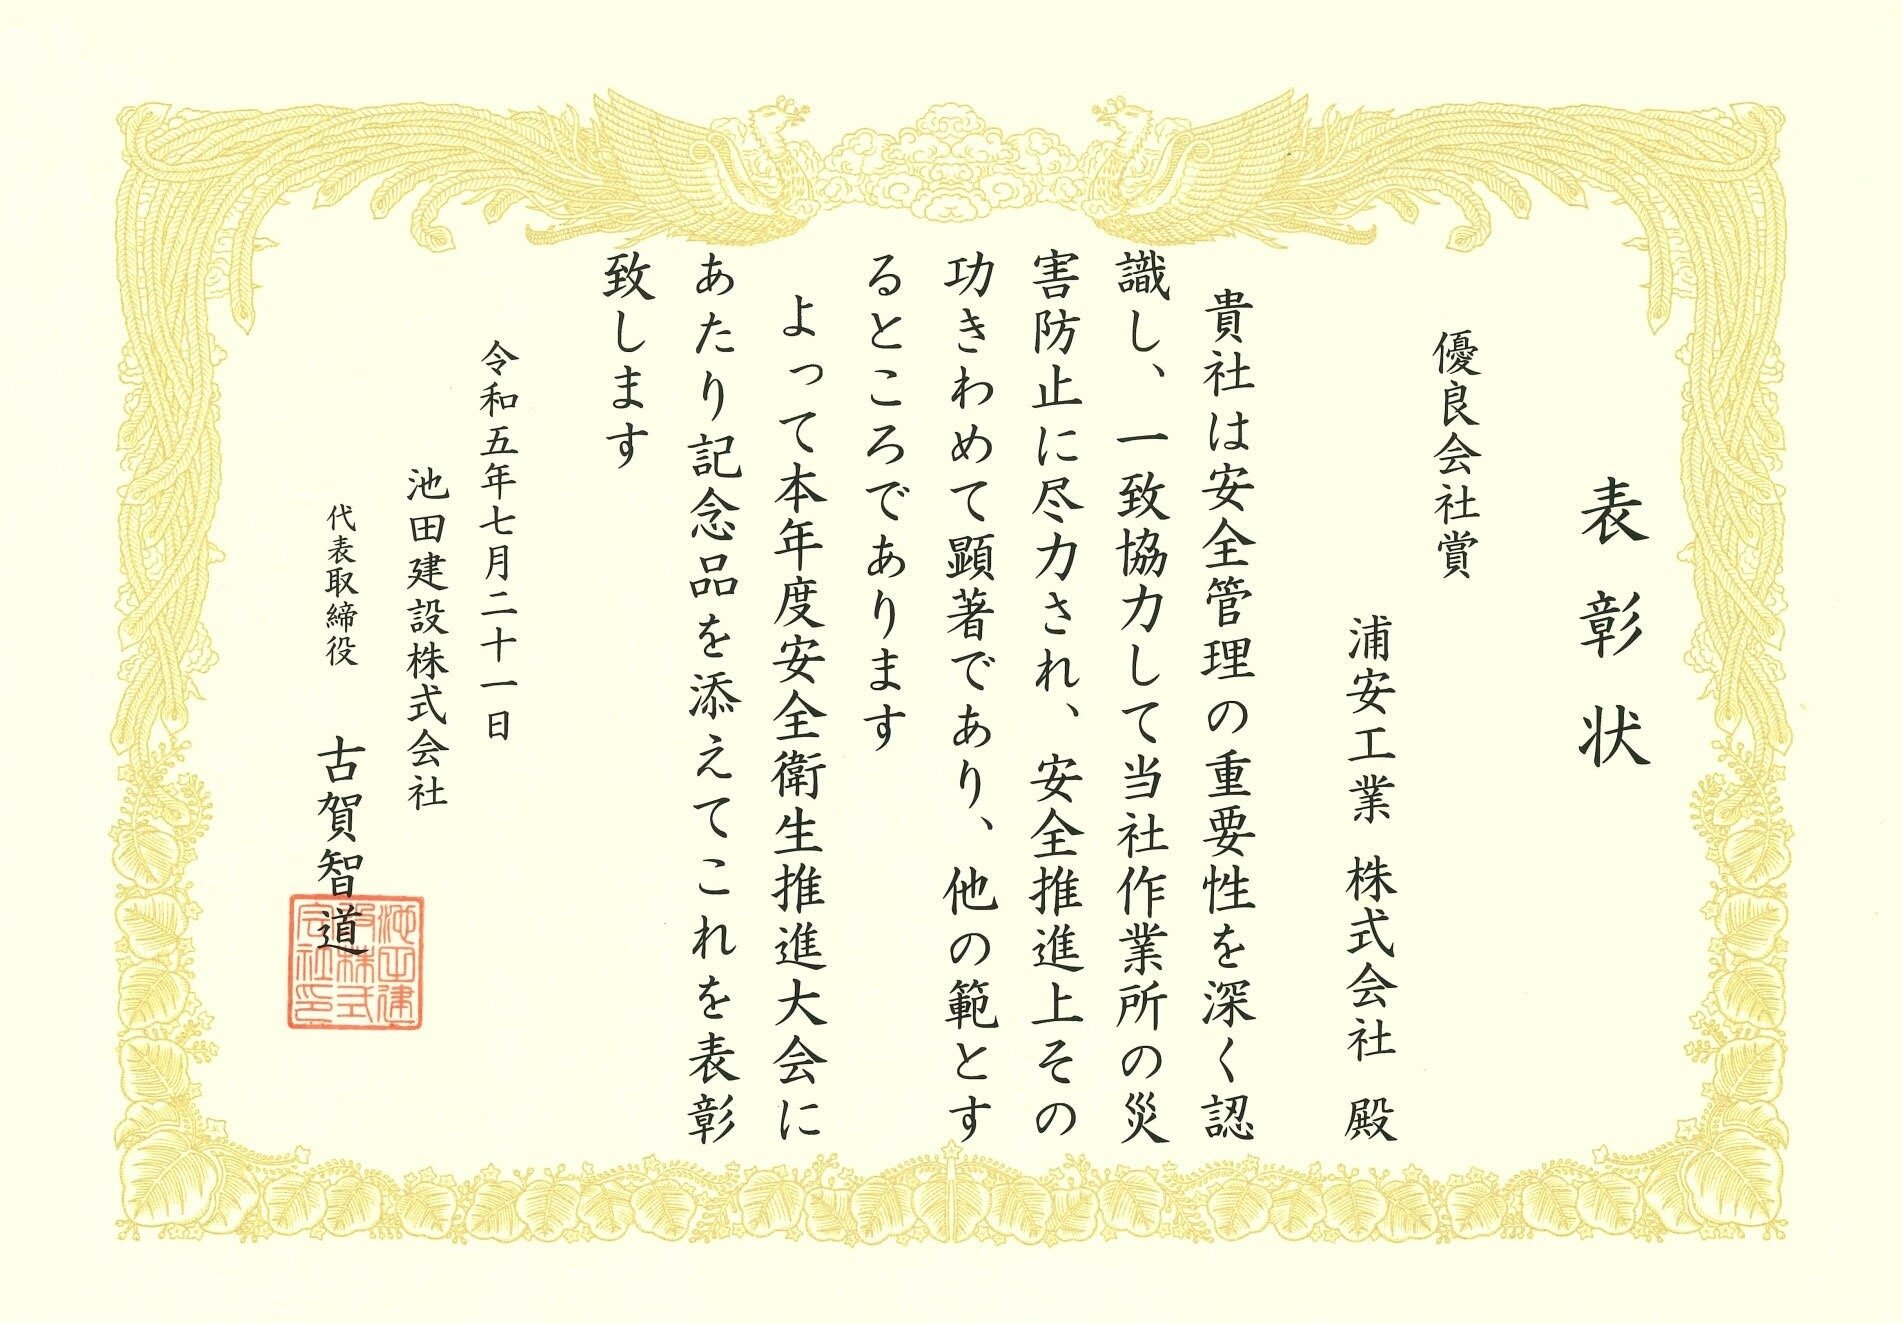 表彰状
優良会社賞
浦安工業 株式会社 殿
貴社は安全管理の重要性を深く認
識し、一致協力して当社作業所の災
害防止に尽力され、安全推進上その
功きわめて顕著であり、他の範とす
るところであります
よって本年度安全衛生推進大会に
あたり記念品を添えてこれを表彰
致します
令和五年七月二十一日
池田建設株式会社
代表取締役 古賀智道
池田建
設株式
会社印